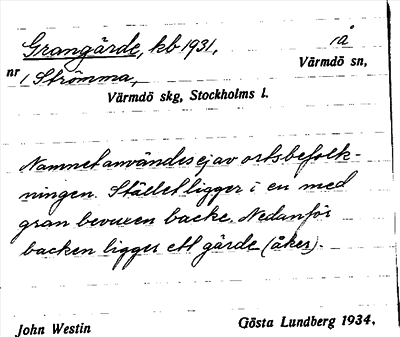 Grangärde, kb 1931, 1å
nr 1 Strömma, Värmdö sn,
Värmdö skg, Stockholms l.
Namnet användes ej av ortsbefolk-
ningen. Stället ligger i en med
gran bevuxen backe. Nedanför
backen ligger ett gärde (åker).
John Westin Gösta Lundberg 1934.